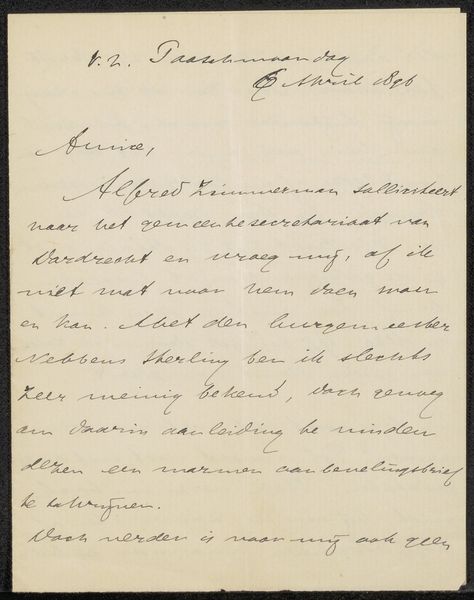 v. h. Paaschmaandag
6 April 1896
Amice,
Alfred Zimmerman solliciteert
naar het gemeentesecretariaat van
Dordrecht en vroeg mij, of ik
niet wat voor hem doen wou
en kan. Met den burgemeester
Nebbens Sterling ben ik slechts
zeer weinig bekend, doch genoeg
om daarin aanleiding te vinden
dezen een warmen aanbevelingsbrief
te schrijven.
Doch verder is voor mij ook geen